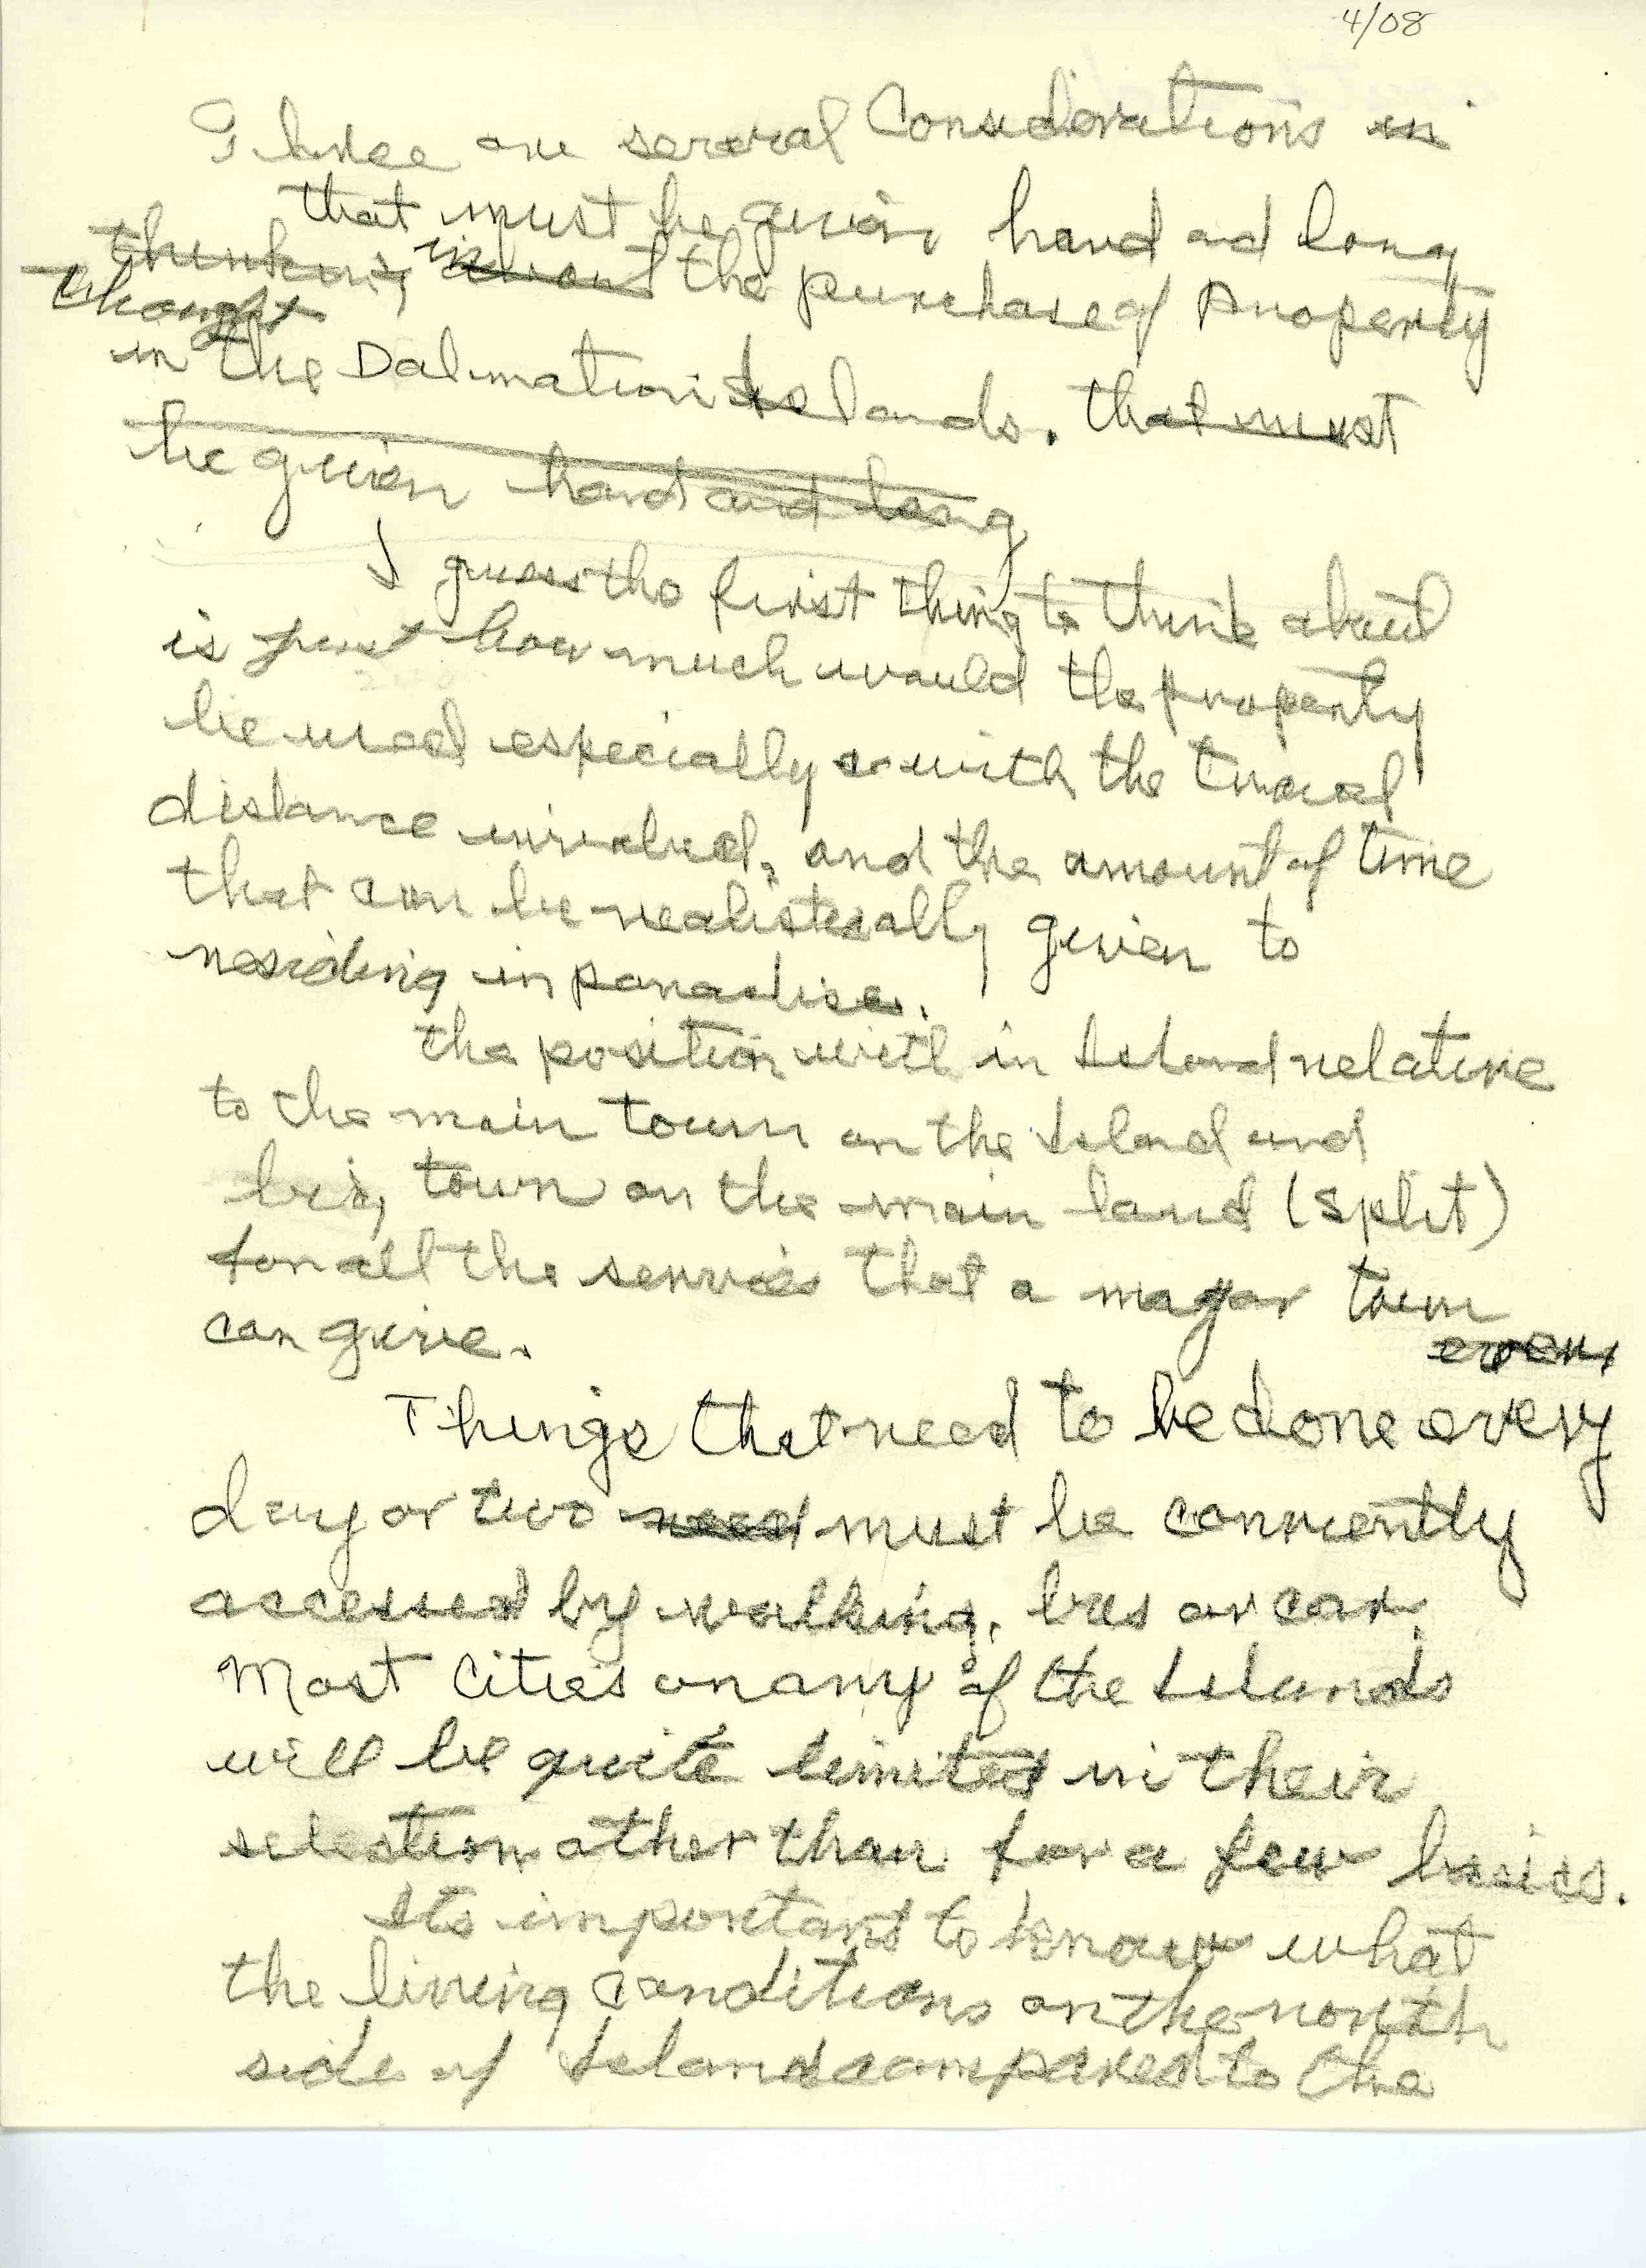 4/08
There are several Considerations in
that must be given hard ad long
thinking in about the purchase of Property
thought
in the Dalmation Islands. that must
be given hard and long
I guess the first thing to think about
is just how much would the property
be used especially with the travel
distance involved, and the amount of time
that can be realistically given to
residing in paradise.
the position with in Island relative
to the main town on the Island and
big town on the main land (split)
for all the services that a major town
can give.
even
Things that need to be done every
day or two need must be conviently
accessed by walking, bus or car.
Most Cities on any of the Islands
will be quite limited in their
selection other than for a few basics.
Its important to know what
the living conditions on the north
side of Island compared to the